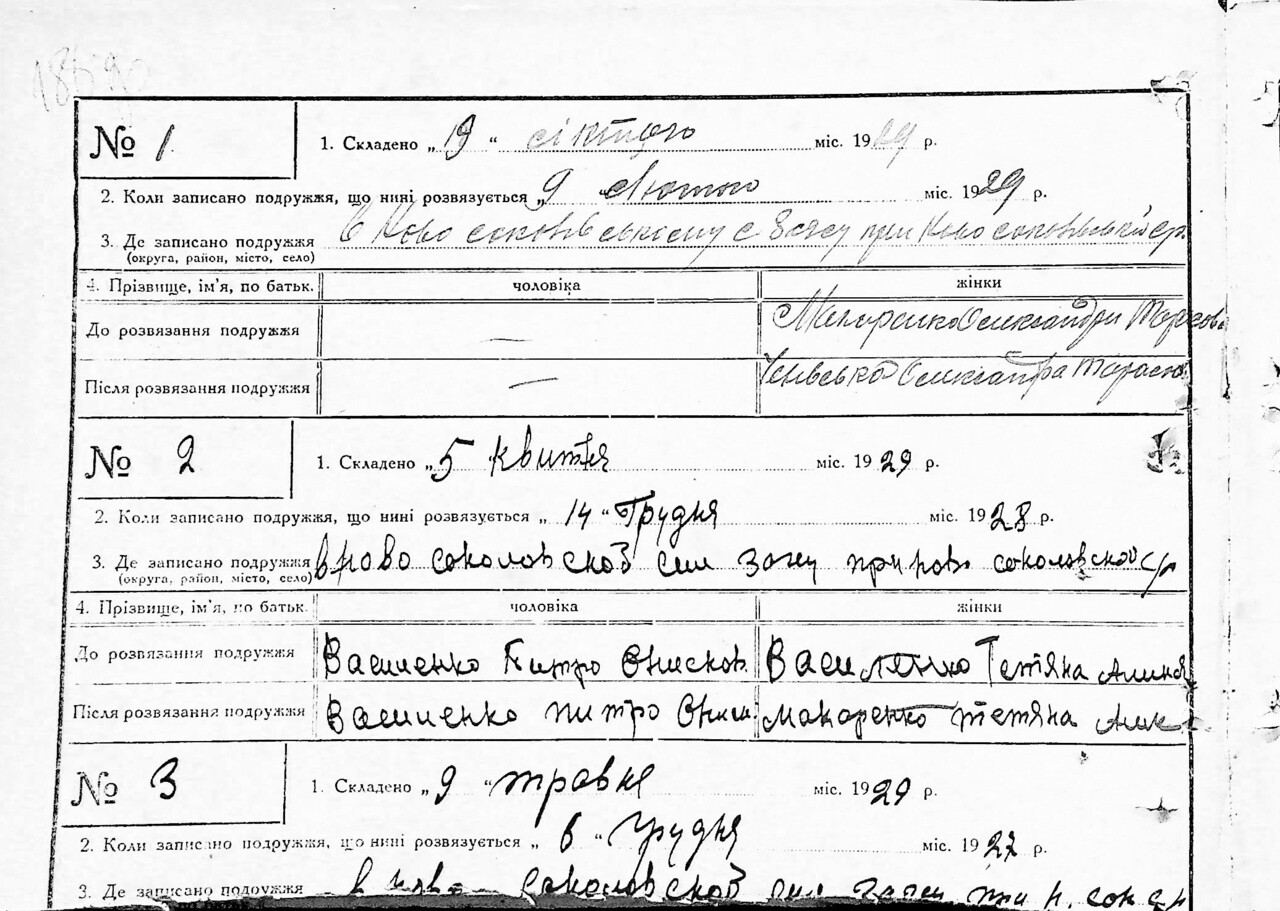 № 1
1. Складено „ 19 “ січного міс. 1929 р.
2. Коли записано подружжя, що нині розвязується „ 9 лютого міс. 1929 р.
3. Де записано подружжя В Ново соколівському с загсу при Ново соколівській ср.
(округа, район, місто, село)
4. Прізвище, ім'я, по батьк. чоловіка жінки
До розвязання подружжя — Олександри Тарасов
Після розвязання подружжя — Олександра Тарасов
№ 2
1. Складено „ 5 “ квитня міс. 1929 р.
2. Коли записано подружжя, що нині розвязується „ 14 “ Грудня міс. 1928 р.
3. Де записано подружжя в ново соколовской сил загсу при ново соколовской с/р
(округа, район, місто, село)
4. Прізвище, ім'я, по батьк. чоловіка жінки
До розвязання подружжя Василенко Питро Онисков. Василенко Тетяна
Після розвязання подружжя Василенко питро Ониси. Макаренко тетяна
№ 3
1. Складено „ 9 “ травня міс. 1929 р.
2. Коли записано подружжя, що нині розвязується „ 6 “ Грудня міс. 1927 р.
3. Де записано подружжя в ново соколовской сил загси при н. сок с р